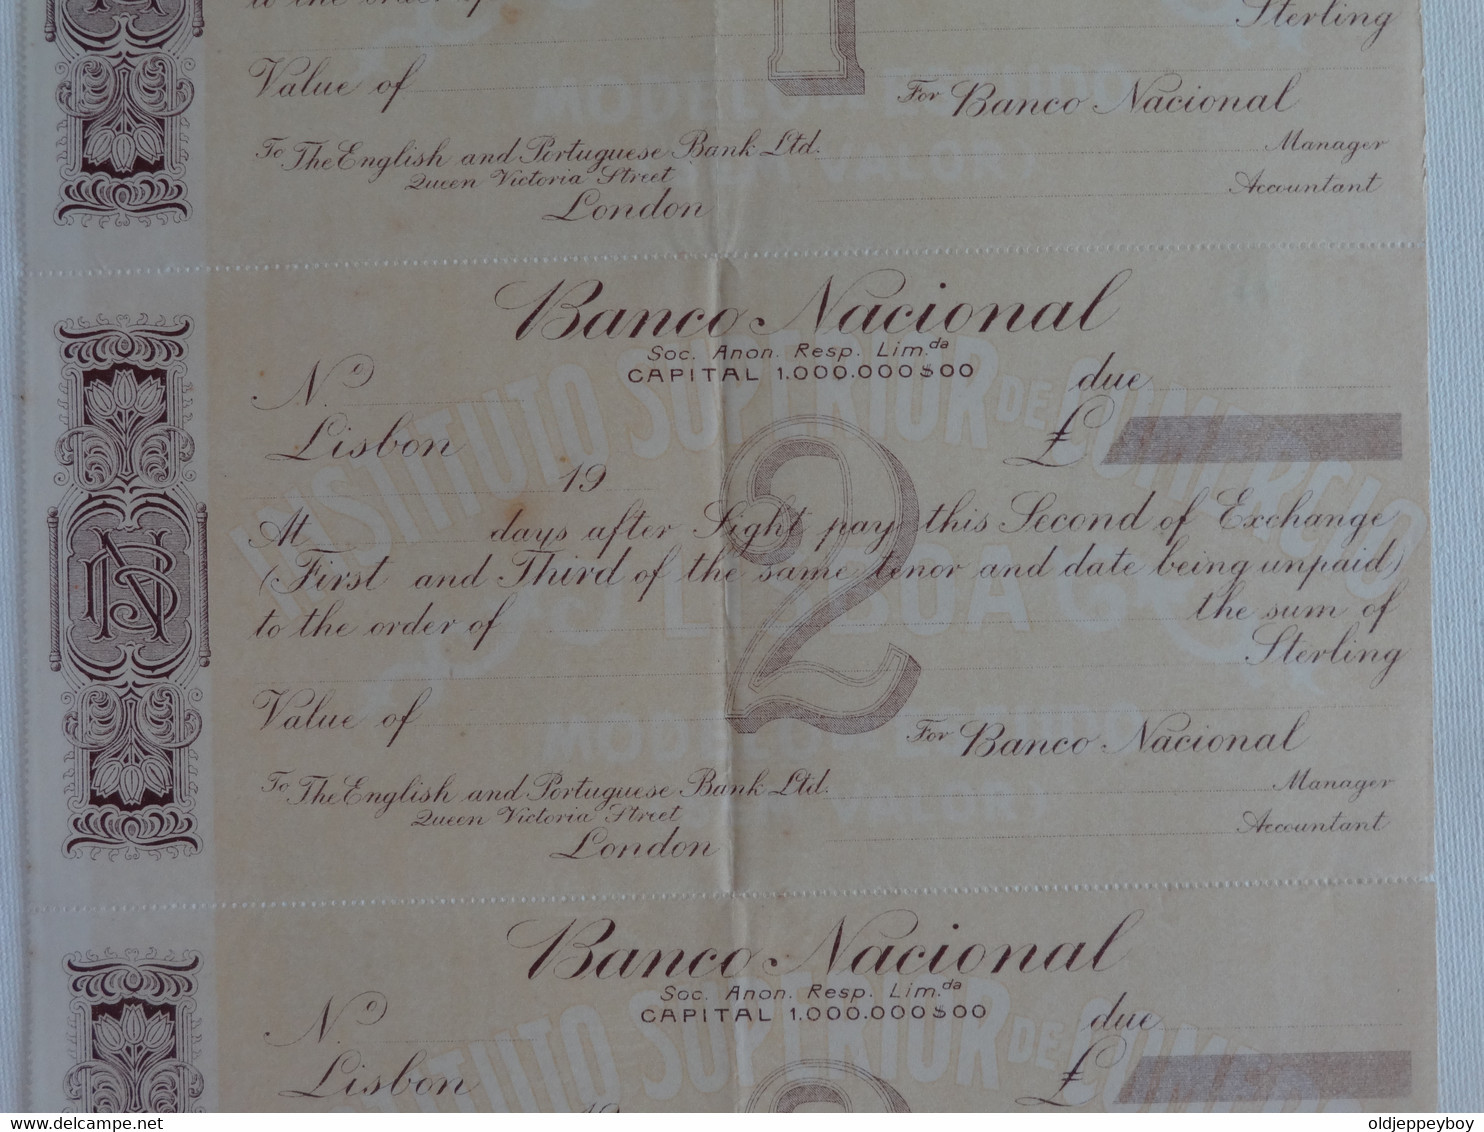 to the order of
Sterling
1
Value of
For Banco Nacional
To The English and Portuguese Bank Ltd.
Manager
Queen Victoria Street
Accountant
London
Banco Nacional
Soc. Anon. Resp. Lim.da
CAPITAL 1.000.000$00
No
due
Lisbon
£
19
2
At days after Sight pay this Second of Exchange
(First and Third of the same tenor and date being unpaid)
to the order of the sum of
Sterling
Value of
For Banco Nacional
To The English and Portuguese Bank Ltd.
Manager
Queen Victoria Street
Accountant
London
NB
INSTITUTO SUPERIOR DE COMERCIO
LISBOA
MODELO
Banco Nacional
Soc. Anon. Resp. Lim.da
CAPITAL 1.000.000$00
No
due
Lisbon
£
19
oldjeppeyboy
delcampe.net